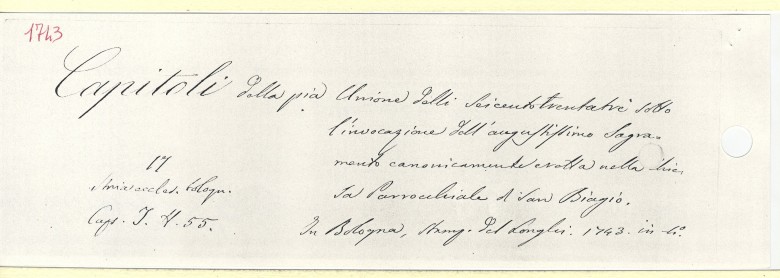 1743
Capitoli della pia Unione delli Seicento trentatrè sotto
l'invocazione dell'augustissimo Sagra-
mento canonicamente eretta nella Chie-
sa Parrocchiale di San Biagio.
In Bologna, Stamp. del Longhi. 1743. in-4°.
17
eccles. bologn.
Caps. I. H. 55.